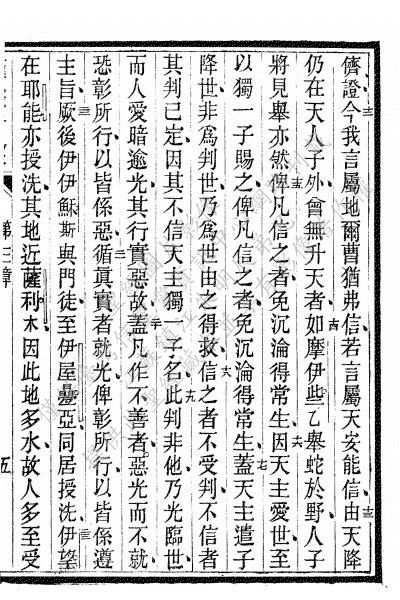 儕證今我言屬地爾曹猶弗信若言屬天安能信由天降
仍在天人子外曾無升天者如摩伊些乙舉蛇於野人子
將見舉亦然俾凡信之者免沉淪得常生因天主愛世至
以獨一子賜之俾凡信之者免沉淪得常生蓋天主遣子
降世非爲判世乃爲世由之得救信之者不受判不信者
其判已定因其不信天主獨一子名此判非他乃光臨世
而人愛暗逾光其行實惡故蓋凡作不善者惡光而不就
恐彰所行以皆係惡循眞實者就光俾彰所行以皆係遵
主旨厥後伊伊穌斯與門徒至伊屋疊亞同居授洗伊望
在耶能亦授洗其地近薩利木因此地多水故人多至受
第三章
五